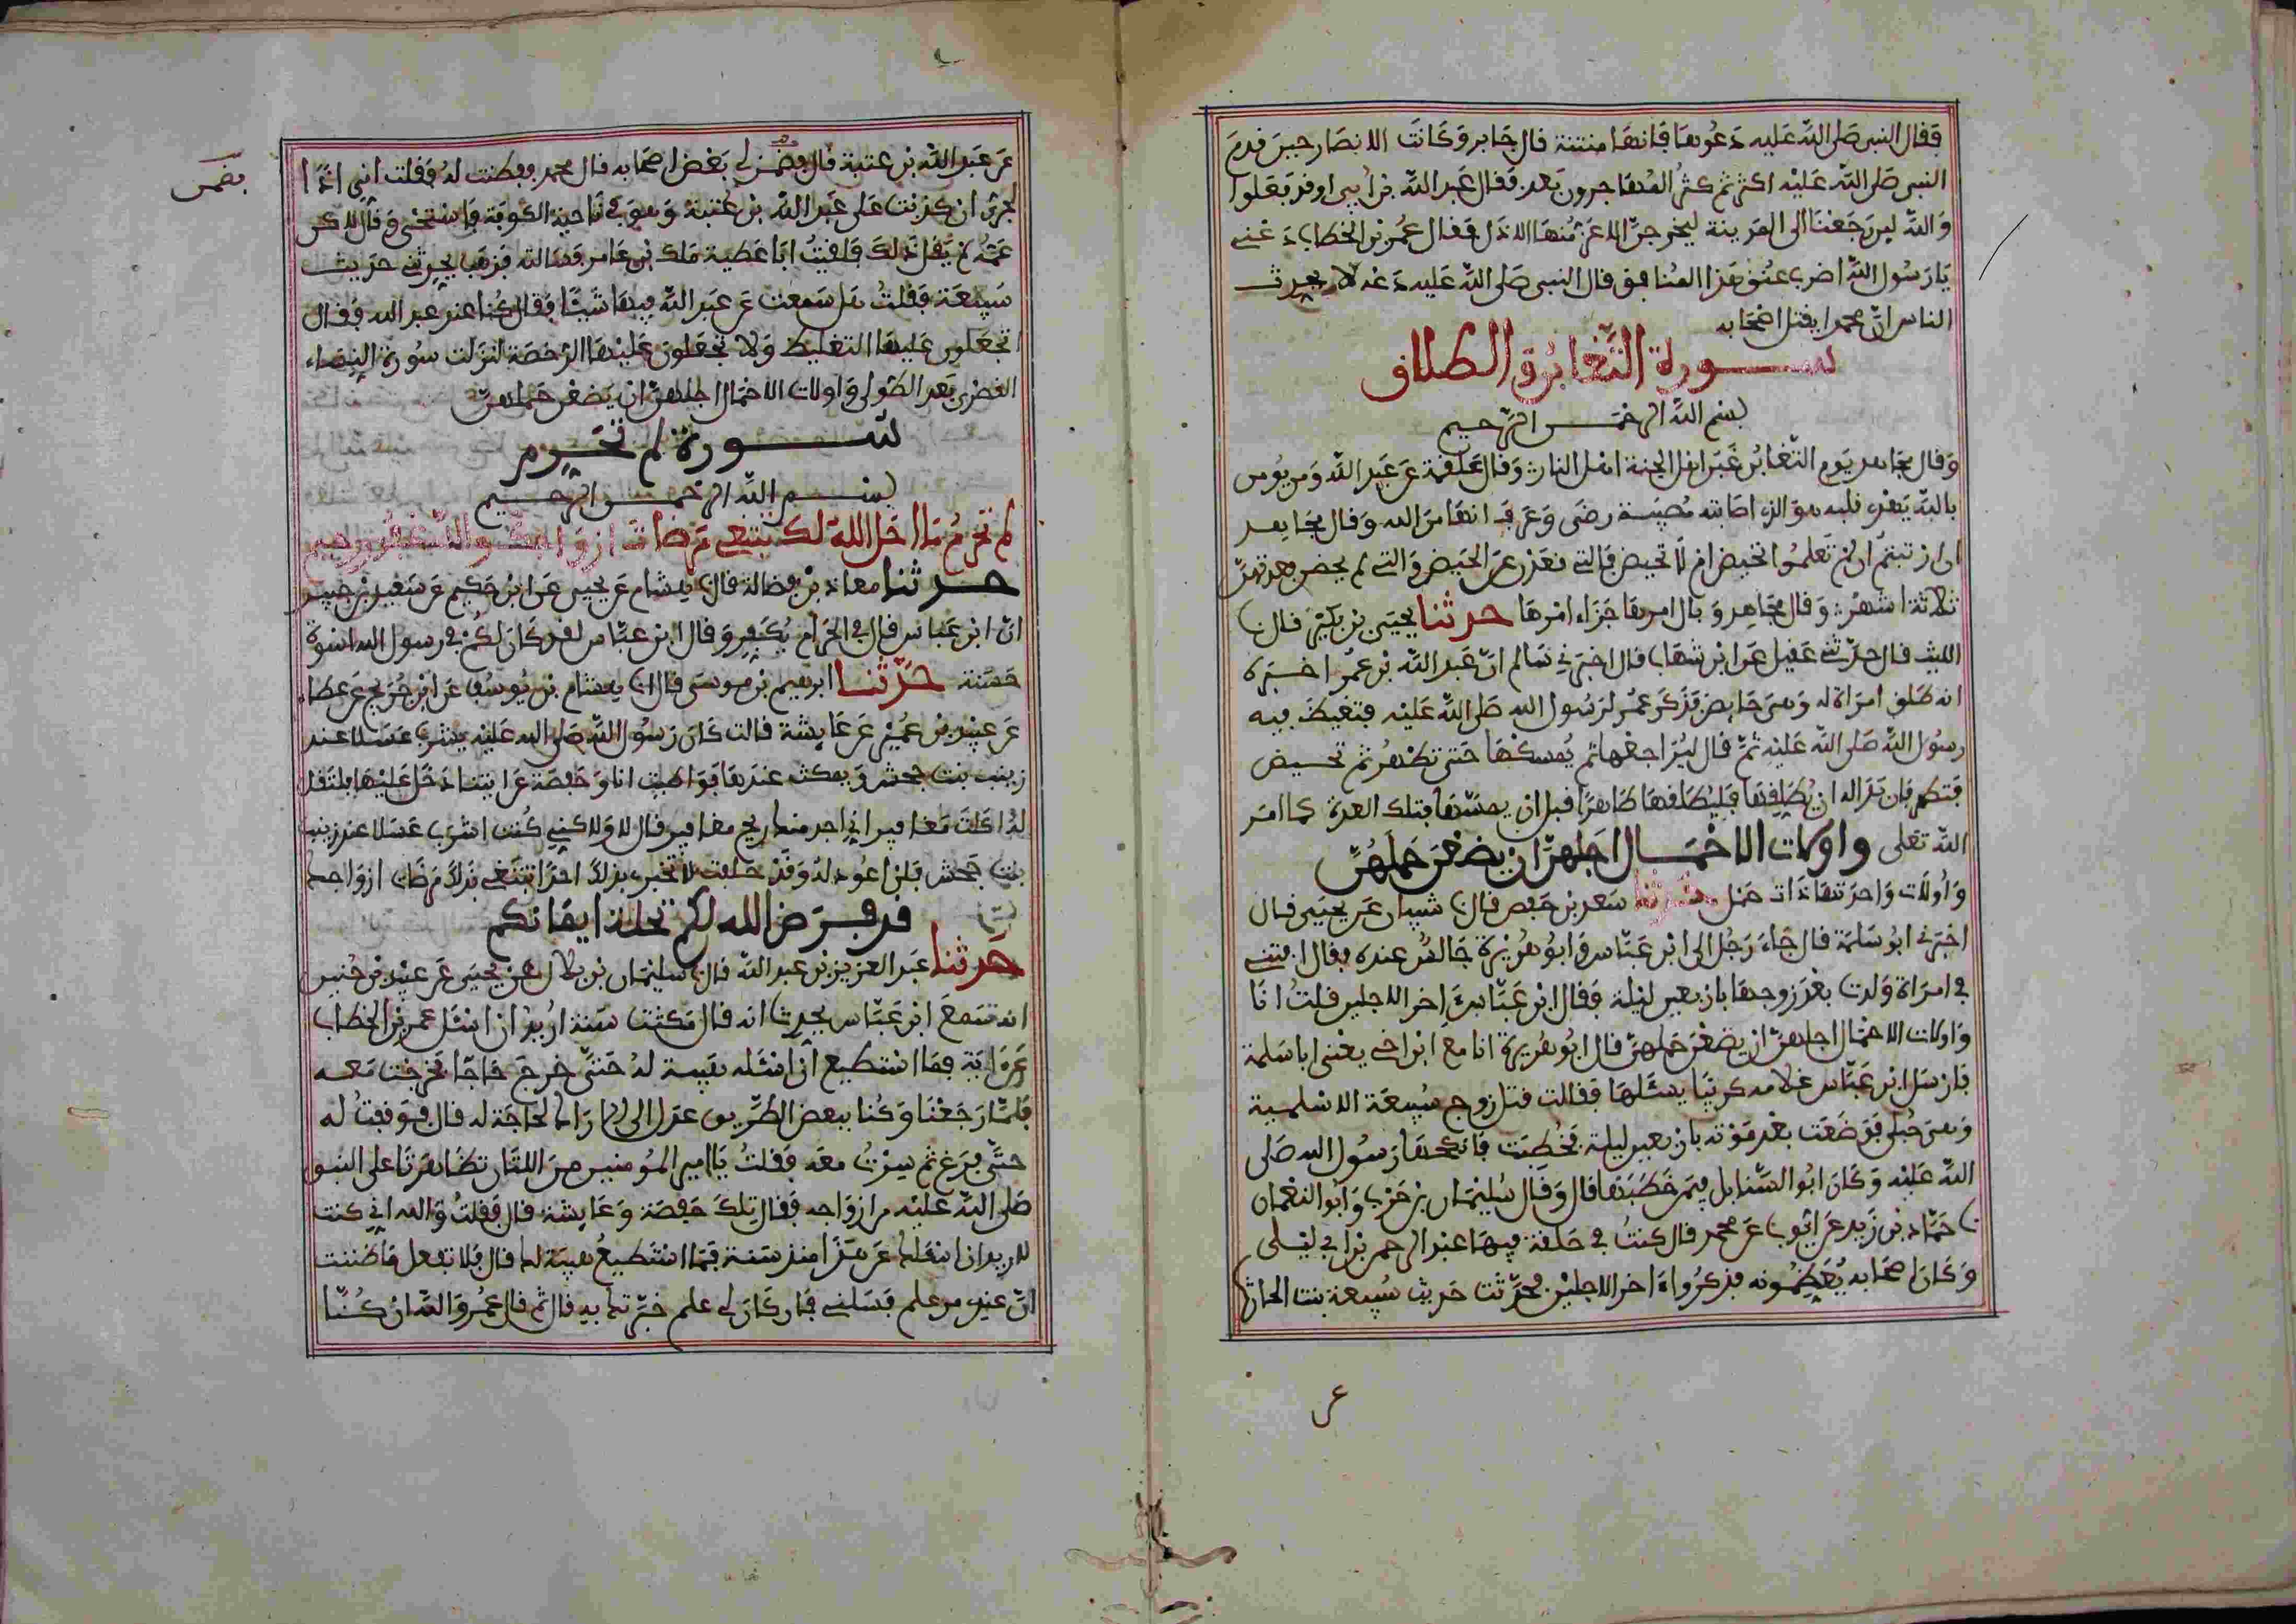 فقال النبى صلى الله عليه دعوها فانها منتنة قال جابر وكانت الانصار حين قدم
النبى صلى الله عليه اكثر ثم كثر المهاجرون بعد فقال عبد الله بن ابى اوقد فعلوا
والله لين رجعنا الى المدينة ليخرجن الاعز منها الاذل فقال عمر بن الخطاب دعنى
يا رسول الله اضرب عنق هذا المنافق قال النبى صلى الله عليه دعه لا يحدث
الناس ان محمدا يقتل اصحابه
سورة التغابن والطلاق
بسم الله الرحمن الرحيم
وقال مجاهد يوم التغابن غبن اهل الجنة اهل النار وقال علقمة عن عبد الله ومن يومن
بالله يهد قلبه هو الذى اصابته مصيبة رضى وعرف انها من الله وقال مجاهد
ان ارتبتم ان لم تعلموا اتحيض ام لا تحيض فالتى قعدن عن الحيض والتى لم يحضن بعد فعدتهن
ثلاثة اشهر وقال مجاهد وبال امرها جزاء امرها حدثنا يحيى بن بكير قال نا
الليث قال حدثنى عقيل عن ابن شهاب قال اخبرنى سالم ان عبد الله بن عمر اخبره
انه طلق امراة له وهى حايض فذكر عمر لرسول الله صلى الله عليه فتغيظ فيه
رسول الله صلى الله عليه ثم قال ليراجعها ثم يمسكها حتى تطهر ثم تحيض
فتطهر فان بدا له ان يطلقها فليطلقها طاهرا قبل ان يمسها فتلك العدة كما امر
الله تعلى واولات الاحمال اجلهن ان يضعن حملهن
واولات واحدتها ذات حمل حدثنا سعد بن حفص قال نا شيبان عن يحيى قال
اخبرنى ابو سلمة قال جاء رجل الى ابن عباس وابو هريرة جالس عنده فقال افتنى
فى امراة ولدت بعد زوجها باربعين ليلة فقال ابن عباس اخر الاجلين قلت انا
واولات الاحمال اجلهن ان يضعن حملهن قال ابو هريرة انا مع ابن اخى يعنى ابا سلمة
فارسل ابن عباس غلامه كريبا يسئلها فقالت قتل زوج سبيعة الاسلمية
وهى حبلى فوضعت بعد موته باربعين ليلة فخطبت فانكحها رسول الله صلى
الله عليه وكان ابو السنابل فيمن خطبها قال وقال سليمان بن حرب وابو النعمان
نا حماد بن زيد عن ايوب عن محمد قال كنت فى حلقة فيها عبد الرحمن بن ابى ليلى
وكان اصحابه يعظمونه فذكروا اخر الاجلين فحدثت حديث سبيعة بنت الحارث
عن عبد الله بن عتبة قال فضمز لى بعض اصحابه قال محمد ففطنت له فقلت انى اذا
لجرى ان كذبت على عبد الله بن عتبة وهو فى ناحية الكوفة فاستحيى وقال لاكن
عمه لم يقل ذلك فلقيت ابا عطية ملك بن عامر فسالته فذهب يحدثنى حديث
سبيعة فقلت هل سمعت عن عبد الله فيها شيئا فقال كنا عند عبد الله فقال
اتجعلون عليها التغليظ ولا تجعلون عليها الرخصة لنزلت سورة النساء
القصرى بعد الطولى واولات الاحمال اجلهن ان يضعن حملهن
سورة لم تحرم
بسم الله الرحمن الرحيم
لم تحرم ما احل الله لك تبتغى مرضات ازواجك والله غفور رحيم
حدثنا معاذ بن فضالة قال نا هشام عن يحيى عن ابن حكيم عن سعيد بن جبير
ان ابن عباس قال فى الحرام يكفر وقال ابن عباس لقد كان لكم فى رسول الله اسوة
حسنة حدثنا ابرهيم بن موسى قال انا هشام بن يوسف عن ابن جريج عن عطاء
عن عبيد بن عمير عن عايشة قالت كان رسول الله صلى الله عليه يشرب عسلا عند
زينب بنت جحش ويمكث عندها فواطيت انا وحفصة عن ايتنا دخل عليها فلتقل
له اكلت مغافير انى اجد منك ريح مغافير قال لا ولاكنى كنت اشرب عسلا عند زينب
بنت جحش فلن اعود له وقد حلفت لا تخبرى بذلك احدا تبتغى بذلك مرضات ازواجك
قد فرض الله لكم تحلة ايمانكم
حدثنا عبد العزيز بن عبد الله قال نا سليمان بن بلال عن يحيى عن عبيد بن حنين
انه سمع ابن عباس يحدث انه قال مكثت سنة اريد ان اسئل عمر بن الخطاب
عن اية فما استطيع ان اسئله هيبة له حتى خرج حاجا فخرجت معه
فلما رجعنا وكنا ببعض الطريق عدل الى الاراك لحاجة له قال فوقفت له
حتى فرغ ثم سرت معه فقلت يا امير المومنين من اللتان تظاهرتا على النبى
صلى الله عليه من ازواجه فقال تلك حفصة وعايشة قال فقلت والله انى كنت
لاريد ان اسئلك عن هذا منذ سنة فما استطيع هيبة لك قال فلا تفعل ما ظننت
ان عندى من علم فسلنى فان كان لى علم خبرتك به قال ثم قال عمر والله ان كنا